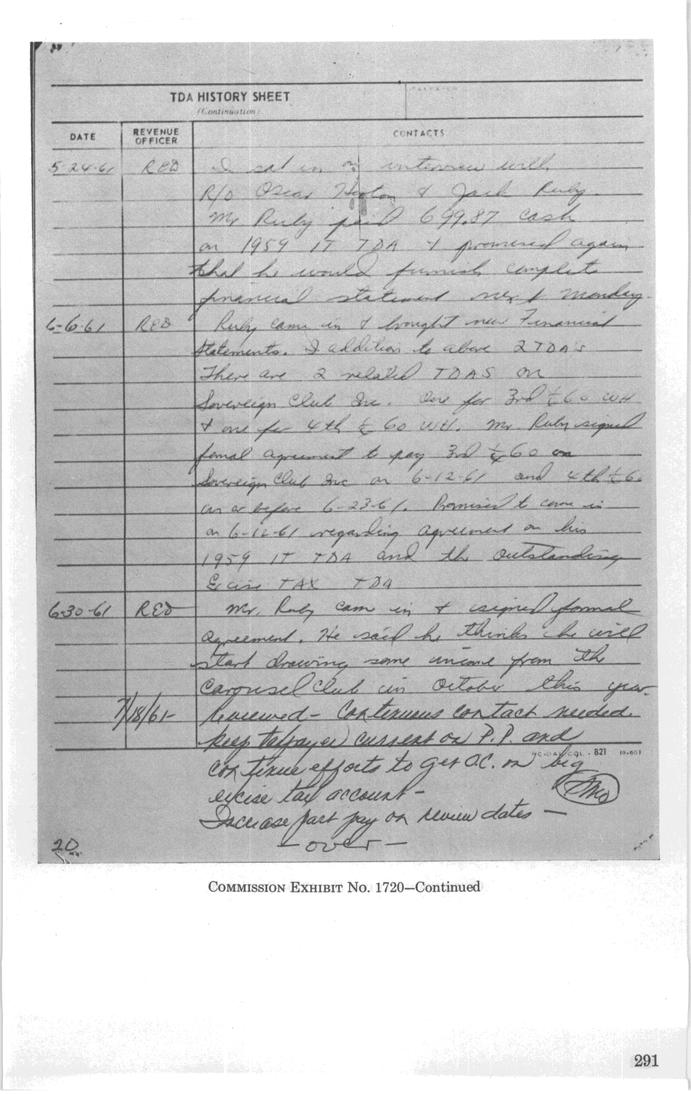 TDA HISTORY SHEET
(Continuation)
DATE
REVENUE OFFICER
CONTACTS
5-24-61 RED I sat in on interview with
R/O Oscar & Jack Ruby.
Mr Ruby paid 699.87 cash
on 1959 IT TDA & promised again
that he would furnish complete
financial statement next Monday.
6-6-61 RED Ruby came in & brought new Financial
Statements. I addition to above 2 TDA's
There are 2 related TDAS on
Sovereign Club Inc. One for 3rd ¼ 60 WH
& one for 4th ¼ 60 WH. Mr. Ruby signed
fomal agreement to pay 3rd ¼ 60 on
Sovereign Club Inc on 6-12-61 and 4th ¼ 6
on or before 6-23-61. Promised to come in
on regarding agreement on his
1959 IT TDA and the outstanding
Excise TAX TDA
6-30-61 RED Mr. Ruby cam in & signed formal
agreement. He said he thinks he will
start drawing some income from the
Carousel Club in October this year.
7/18/61- Reviewed - Continuous contact needed.
keep taxpayer current on P.P. and
continue efforts to get on big
excise tax account -
Increase part pay on review dates -
- over -
821
20
COMMISSION EXHIBIT No. 1720—Continued
291